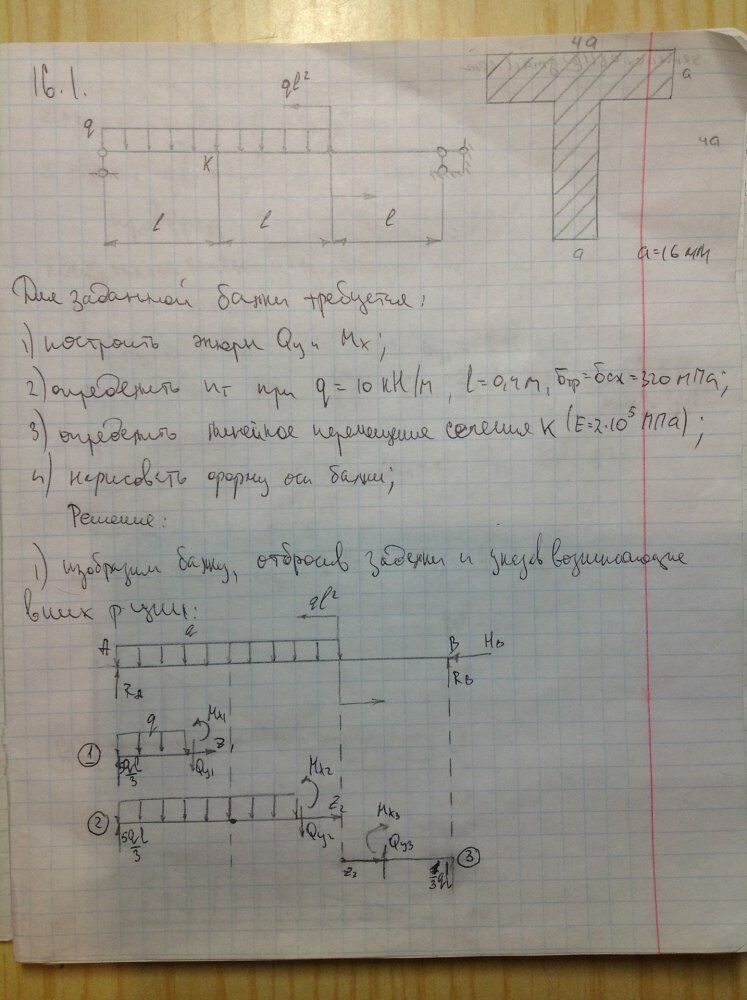 16.1.
4a
ql²
a
q
K
4a
l
l
l
a
a=16 мм
Для заданной балки требуется:
1) построить эпюры Qy и Mx;
2) определить nт при q = 10 кН/м, l=0,4м, σтр=σсж=320 мПа;
3) определить линейное перемещение сечения K (E=2·10⁵ МПа);
4) нарисовать форму оси балки;
Решение:
1) изобразим балку, отбросив заделки и указав возникающие
в них р-ции:
ql²
q
A
B
HB
RA
RB
q
Mx1
1
Z1
5ql/3
Qy1
Mx2
2
Z2
5ql/3
Qy2
Mx3
Qy3
3
Z2
1/3ql